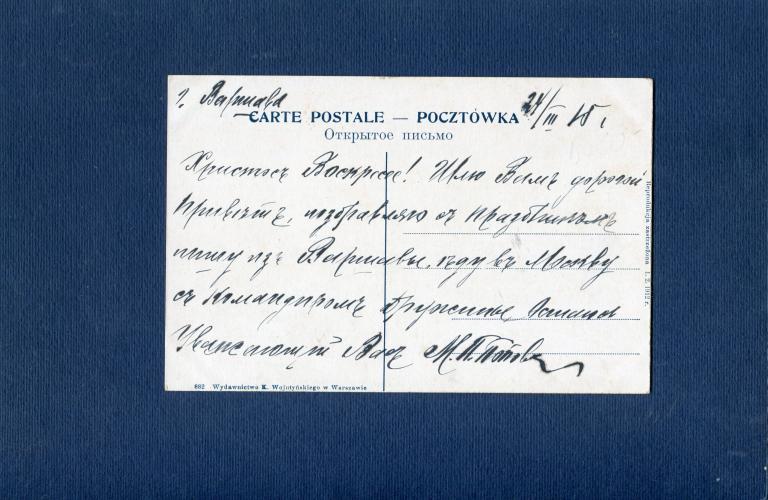 г. Варшава
24/III 15 г.
CARTE POSTALE — POCZTÓWKA
Открытое письмо
Христосъ Воскресе! Шлю Вамъ дорогой
привѣтъ, поздравляю съ праздникомъ
пишу изъ Варшавы, ѣду въ Москву
съ Командиромъ Дружины
Уважающій Васъ М.П. Поповъ
Reprodukcja zastrzeżona 1. 2. 1912 r.
882 Wydawnictwo K. Wojutyńskiego w Warszawie